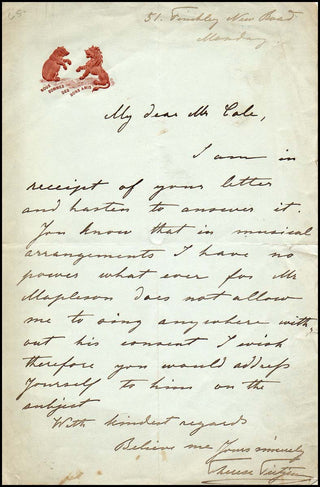 51. Finchley New Road
Monday
NOUS SOMMES DES BONS AMIS
My dear Mr Cole,
I am in
receipt of your letter
and hasten to answer it.
You know that in musical
arrangements I have no
power what ever for Mr
Mapleson does not allow
me to sing anywhere with,
out his consent I wish
therefore you would address
Yourself to him on the
subject
With kindest regards
Believe me Yours sincerely
Therese Tietjens